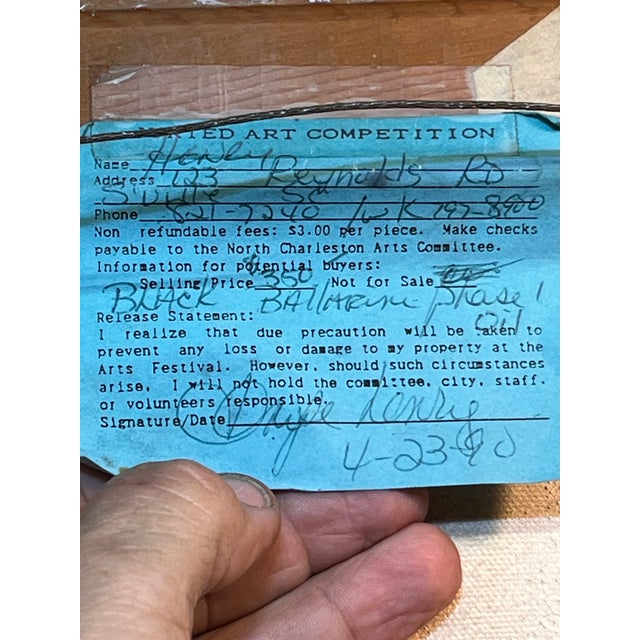 ART COMPETITION
Name Henry
Address 123 Reynolds RD
S'ville SC
Phone 821-7240 /wk 797-8900
Non refundable fees: $3.00 per piece. Make checks
payable to the North Charleston Arts Committee.
Information for potential buyers:
Selling Price $350 Not for Sale
BLACK BALLARINE phase 1
Release Statement: Oil
I realize that due precaution will be taken to
prevent any loss or damage to my property at the
Arts Festival. However, should such circumstances
arise, I will not hold the committee, city, staff,
or volunteers responsible.
Signature/Date Henry
4-23-90